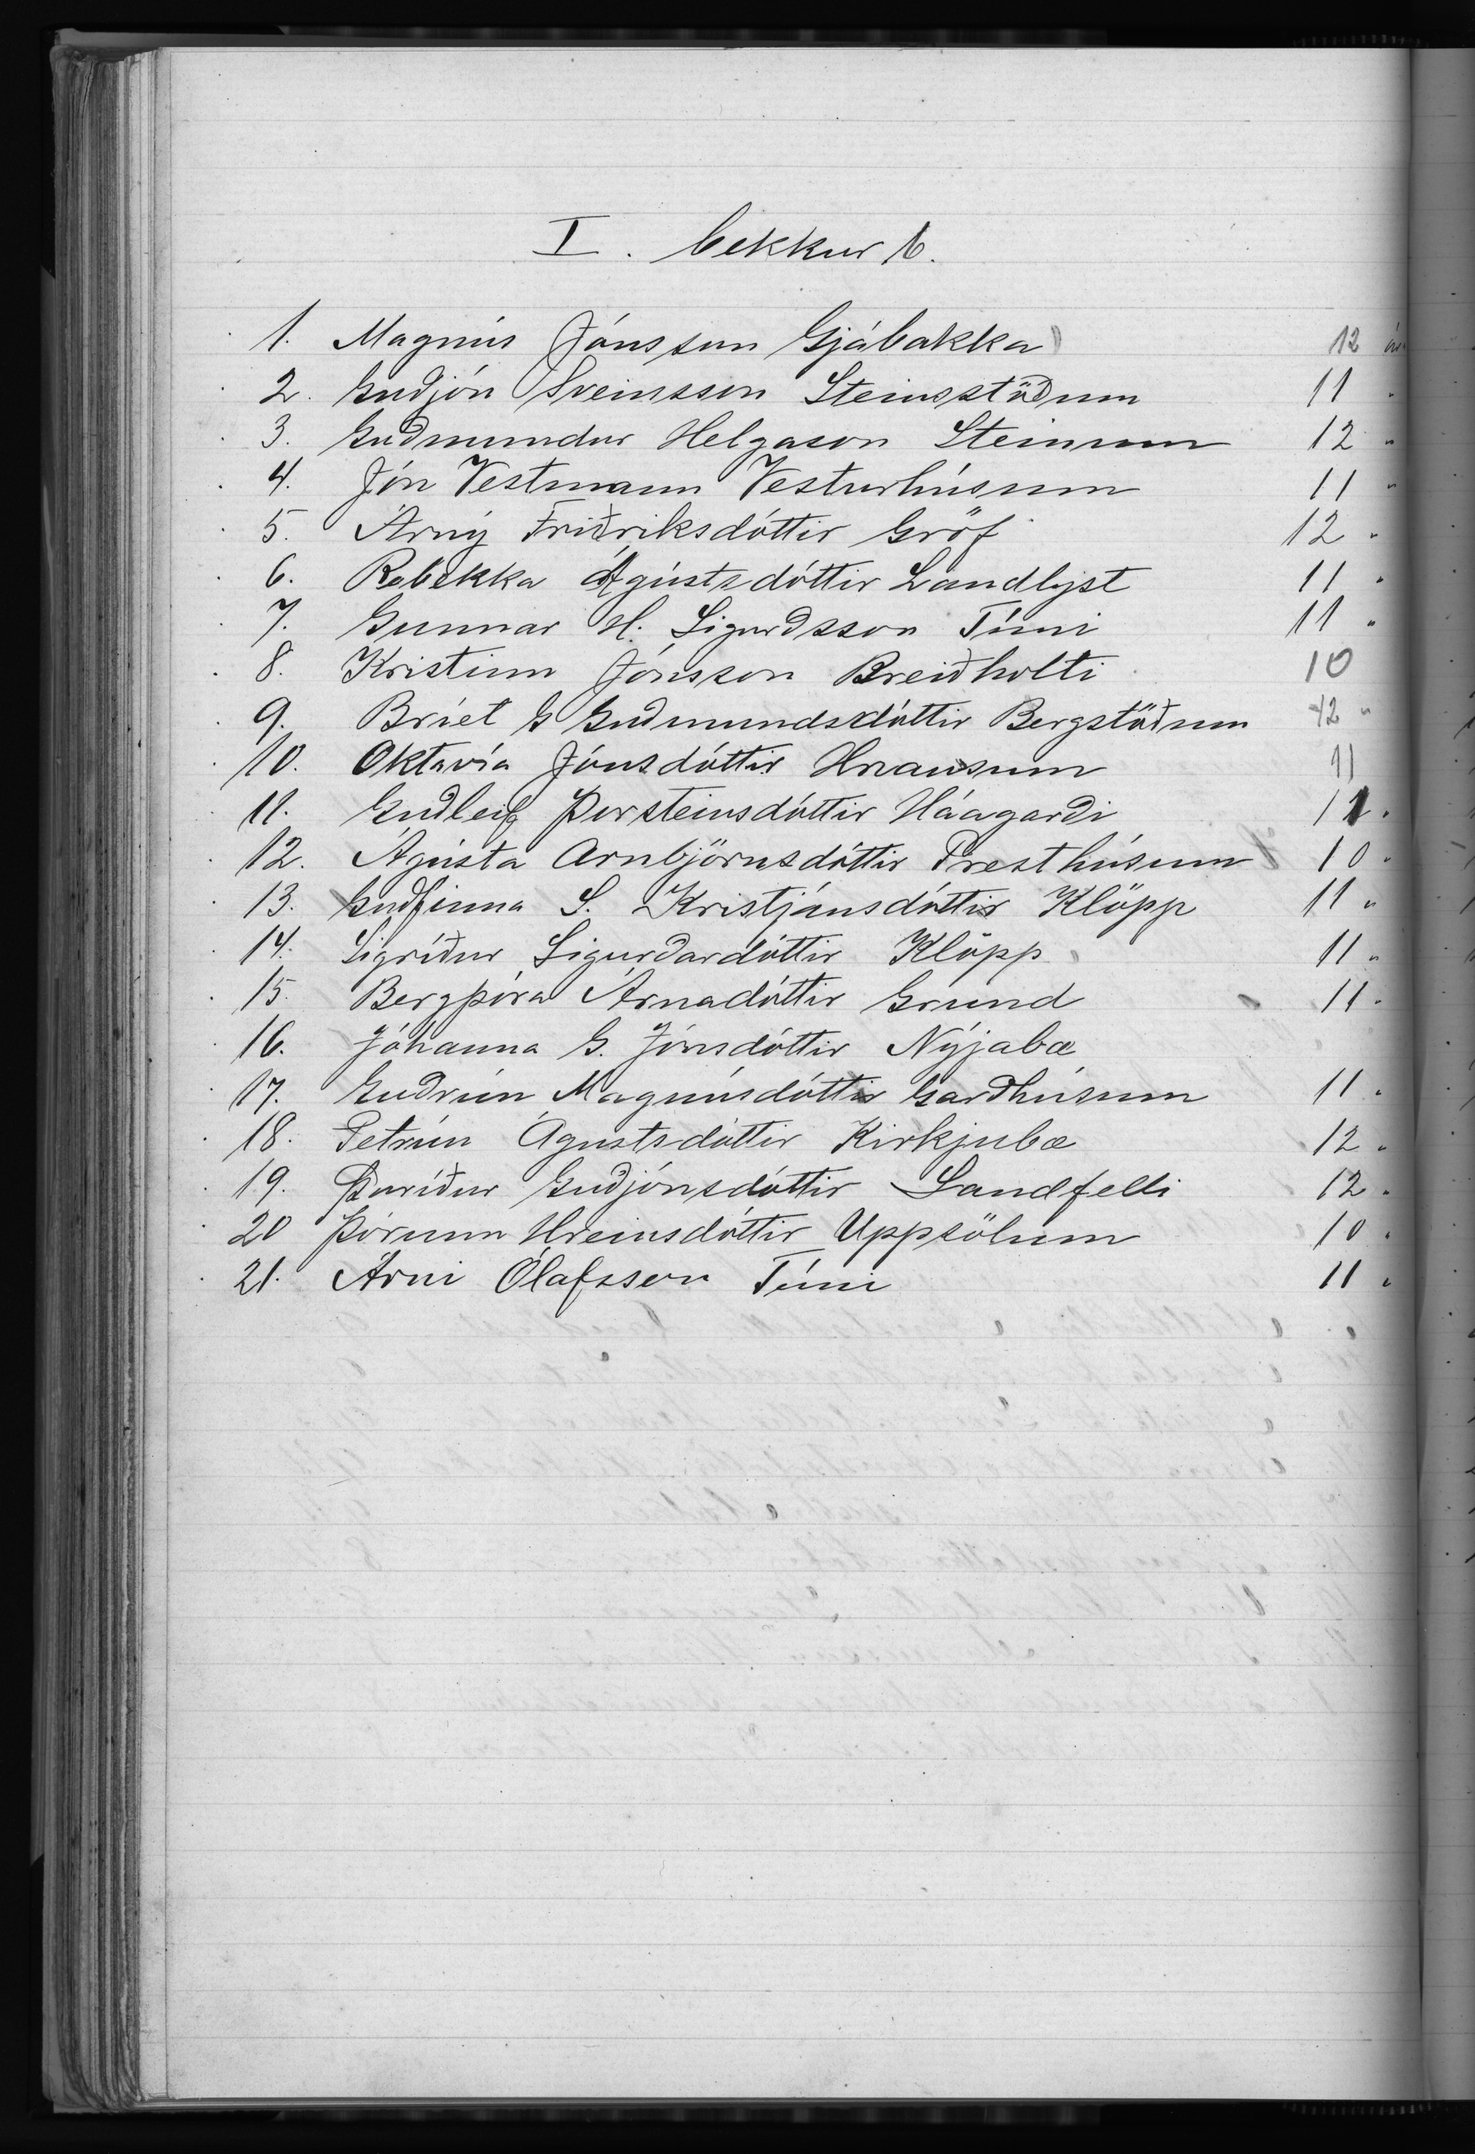 I. bekkur b.
1. Magnús Jónsson Gjábakka 12 ár
2. Guðjón Sveinsson Steinsstöðum 11 "
3. Guðmundur Helgason Steinum 12 "
4. Jón Vestmann Vesturhúsum 11 "
5. Árný Friðriksdóttir Gröf 12 "
6. Rebekka Ágústsdóttir Landlyst 11 "
7. Gunnar H. Sigurðsson Túni 11 "
8. Kristinn Jónsson Breiðholti 10
9. Bríet G Guðmundsdóttir Bergstöðum 12 "
10. Oktavía Jónsdóttir Hraunsum 11
11. Guðleif Þorsteinsdóttir Háagarði 11 "
12. Ágústa Arnbjörnsdóttir Presthúsum 10 "
13. Guðfinna S. Kristjánsdóttir Klöpp 11 "
14. Sigríður Sigurðardóttir Klöpp 11 "
15. Bergþóra Árnadóttir Grund 11 "
16. Jóhanna G. Jónsdóttir Nýjabæ
17. Guðrún Magnúsdóttir Garðhúsum 11 "
18. Petrún Águstsdóttir Kirkjubæ 12 "
19. Þuríður Guðjónsdóttir Sandfelli 12 "
20 Þórunn Hreinsdóttir Uppsölum 10 "
21. Árni Ólafsson Túni 11 "